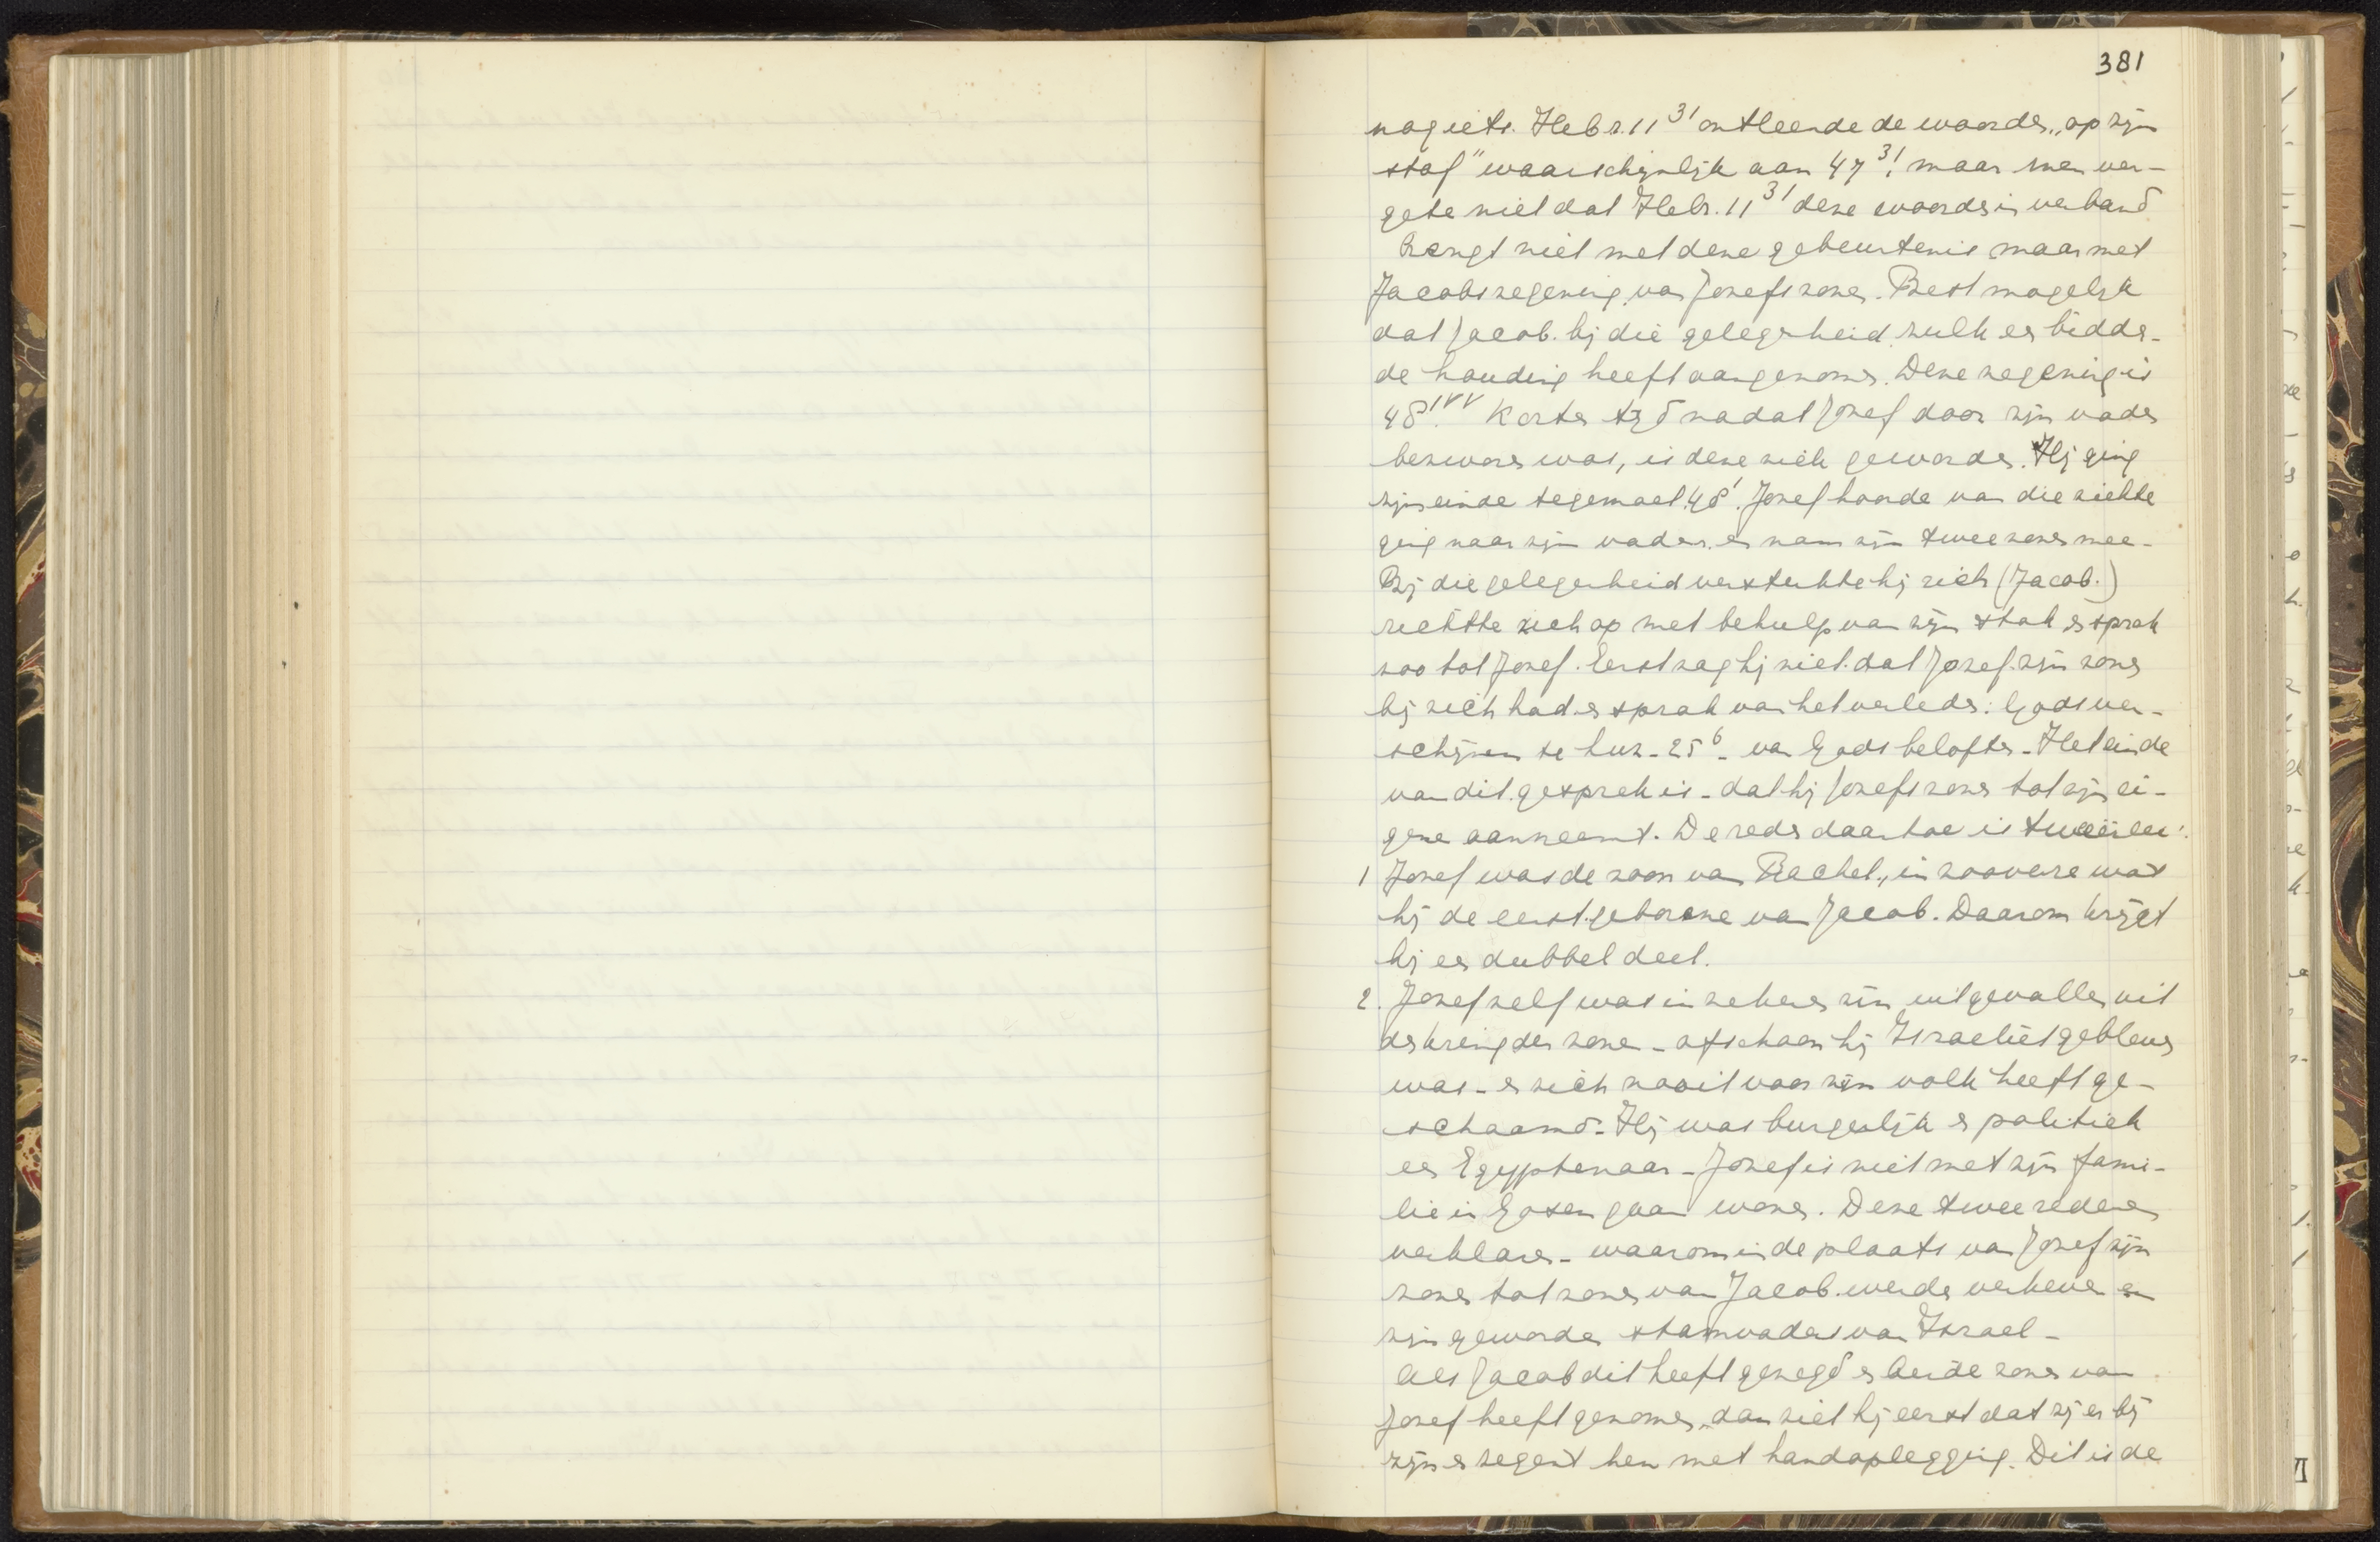 381
nog iets. Hebr. 11³¹ ontleende de woorden „op zijn
staf" waarschijnlijk aan 47³¹. maar men ver-
gete niet dat Hebr. 11³¹ deze woorden in verband
brengt niet met deze gebeurtenis maar met
Jacobs zegening van Jozefs zonen. Best mogelijk
dat Jacob. bij die gelegenheid zulk een bidden-
de houding heeft aangenomen. Deze zegening is
48¹ᵛᵛ. Korten tijd nadat Jozef door zijn vader
bezworen was, is deze ziek geworden. Hij ging
zijn einde tegemoet 48¹. Jozef hoorde van die ziekte
ging naar zijn vader. en nam zijn twee zonen mee-
Bij die gelegenheid versterkte hij zich (Jacob.)
richtte zich op met behulp van zijn stok en sprak
zoo tot Jozef. Eerst zag hij niet. dat Jozef. zijn zonen
bij zich had en sprak van het verleden: Gods ver-
schijnen te Luz - 25⁶ - van Gods beloften - Het einde
van dit. gesprek is - dat hij Jozefs zonen tot zijn ei-
gene aanneemt. De reden daartoe is tweeërlei:
1 Jozef was de zoon van Rachel., in zooverre was
hij de eerst.geborene van Jacob. Daarom krijgt
hij een dubbel deel.
2. Jozef zelf was in zekeren zin uitgevallen uit
den kring der zonen - ofschoon hij Israeliet gebleven
was - en zich nooit voor zijn volk heeft ge-
schaamd - Hij was burgerlijk en politiek
een Egyptenaar - Jozef is niet met zijn fami-
lie in Gosen gaan wonen. Deze twee redenen
verklaren - waarom in de plaats van Jozef zijn
zonen tot zonen van Jacob. werden verheven en
zijn geworden stamvaders van Israel -
Als Jacob dit heeft gezegd en beide zonen van
Jozef heeft genomen, dan ziet hij eerst dat zij er bij
zijn en zegent hen met handoplegging. Dit is de